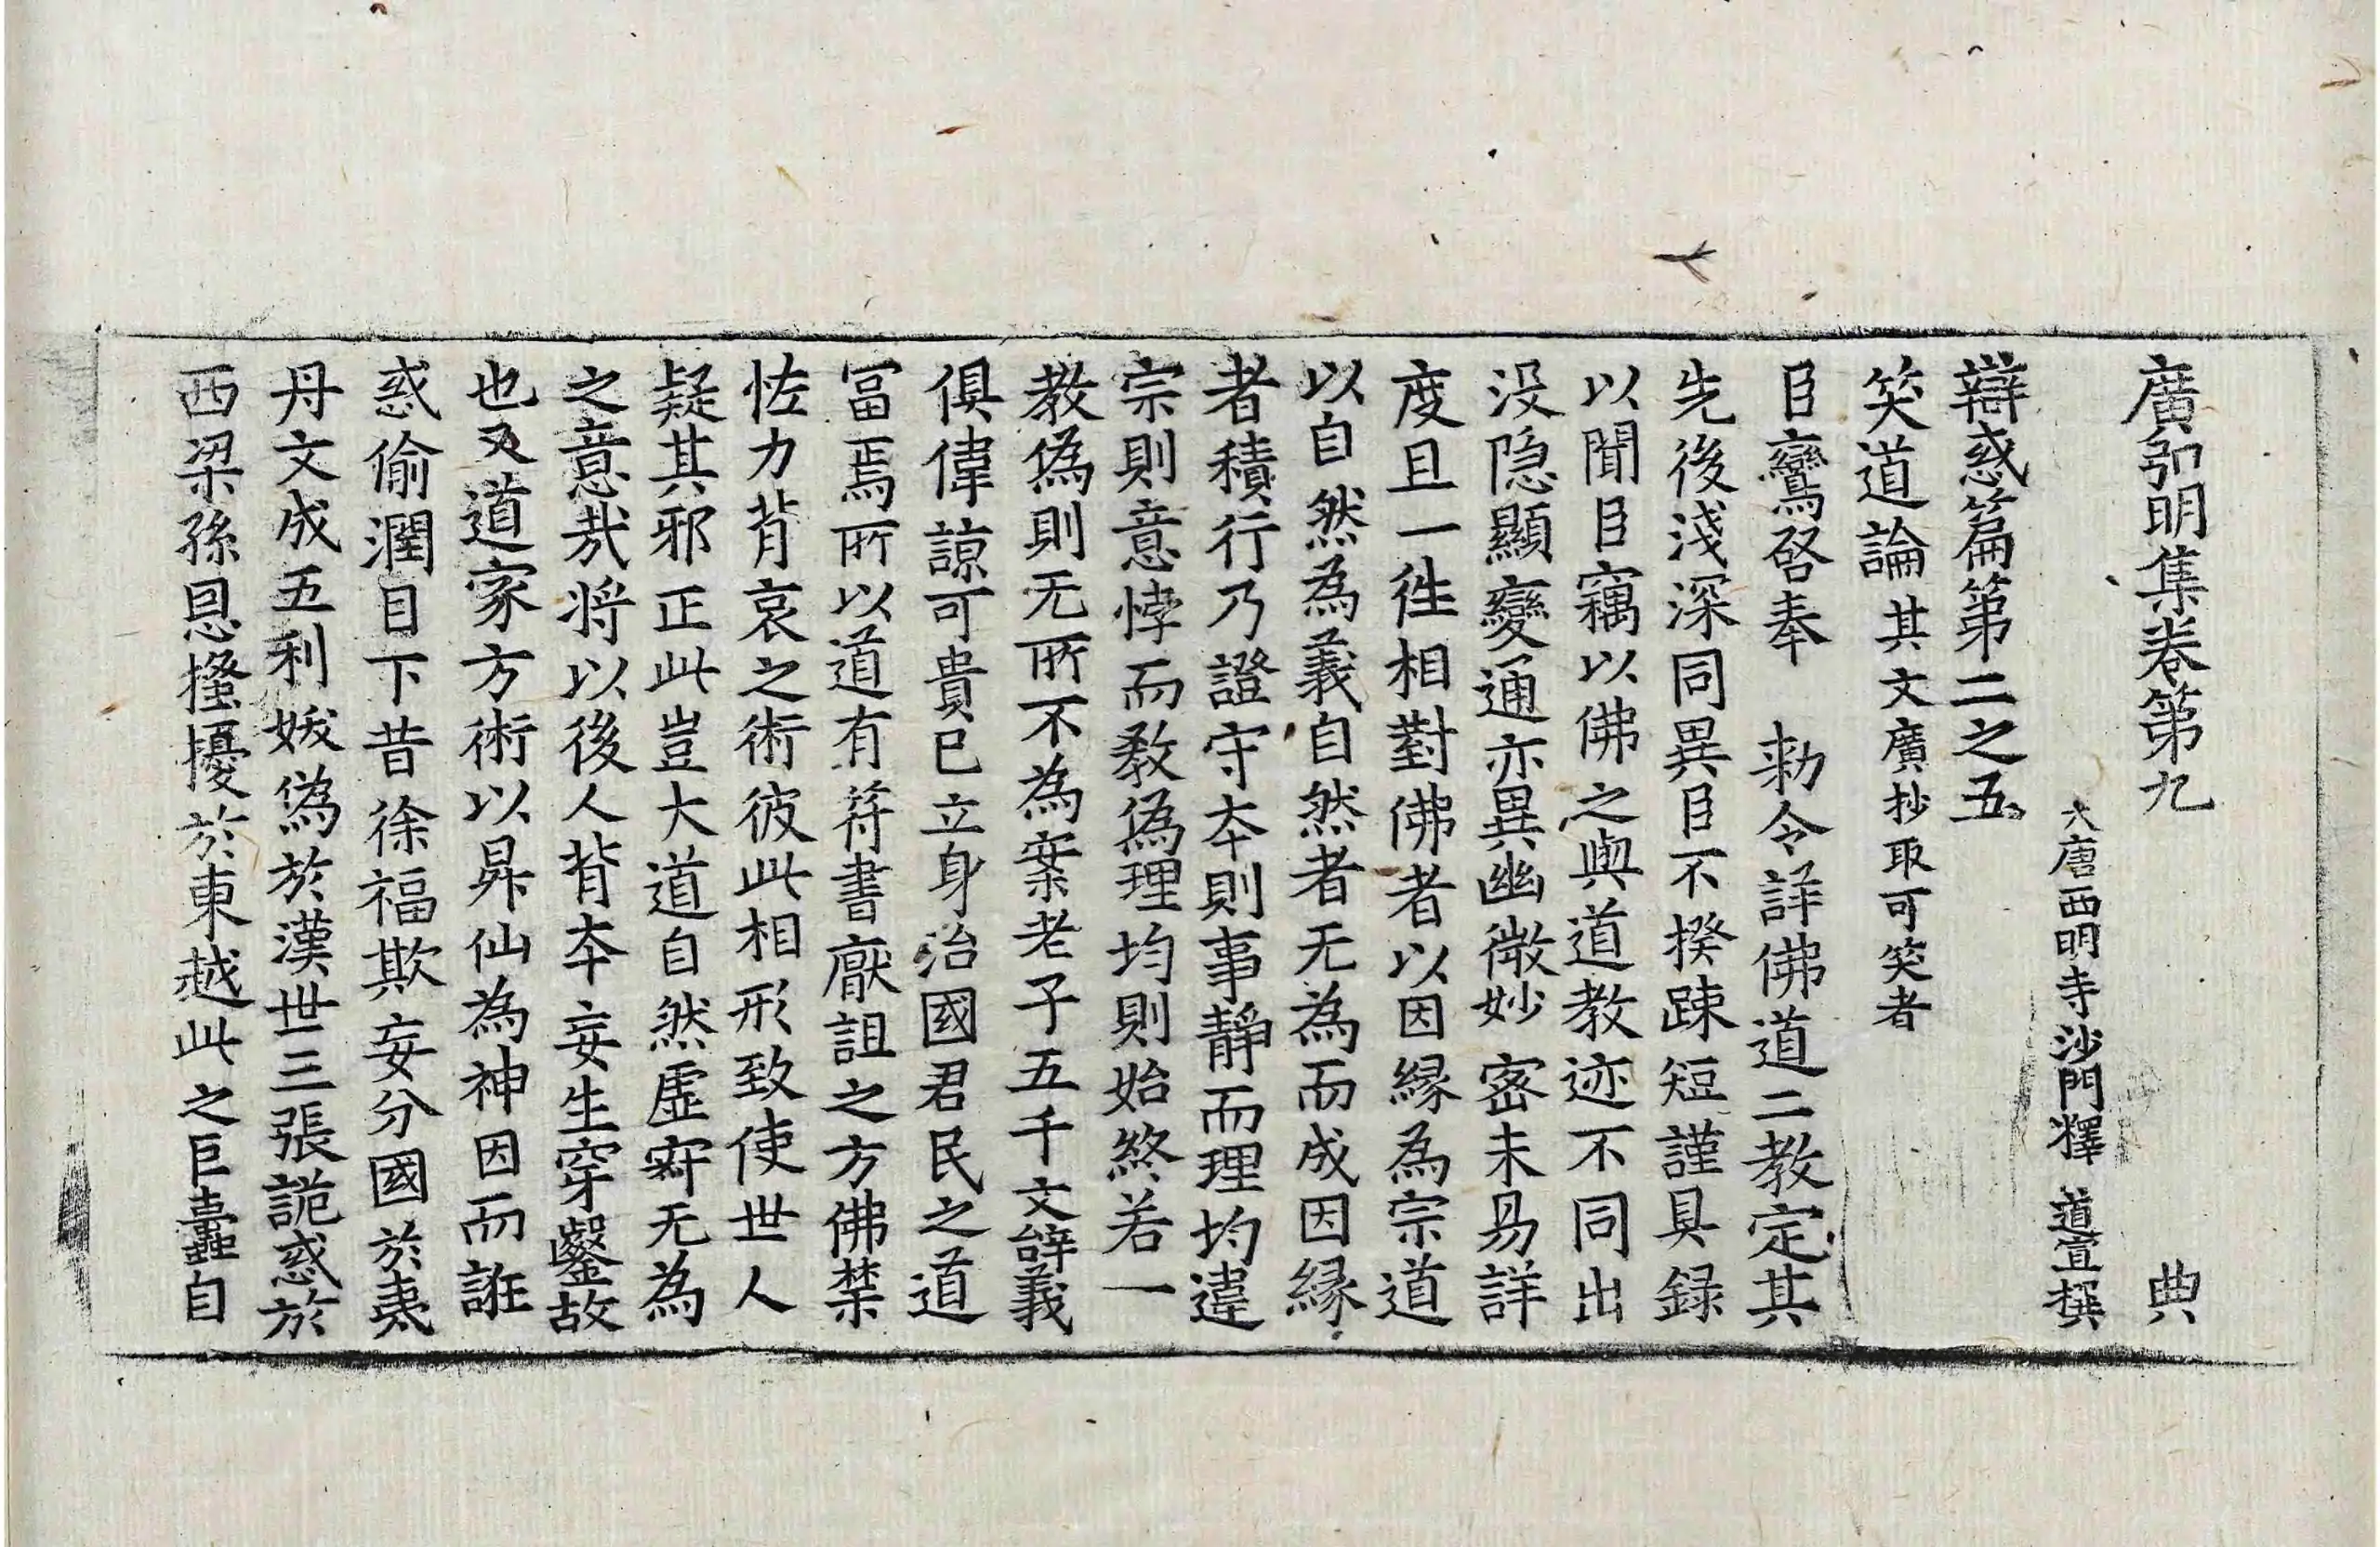 廣弘明集卷第九　典
大唐西明寺沙門釋　道宣撰
辯惑篇第二之五
笑道論其文廣抄取可笑者
臣鸞啓奉　勑令詳佛道二教定其
先後淺深同異臣不揆踈短謹具録
以聞臣竊以佛之與道教迹不同出
没隐顯變通亦異幽微妙密未易詳
度且一往相對佛者以因緣為宗道
以自然為義自然者无為而成因緣
者積行乃證守夲則事靜而理均違
宗則意悖而教偽理均則始終若一
教偽則无所不為案老子五千文辝義
俱偉諒可貴巳立身治國君民之道
冨焉所以道有符書厭詛之方佛禁
恠力背哀之術彼此相形致使世人
疑其邪正此豈大道自然虛寂无為
之意㢤将以後人背夲妄生穿鑿故
也又道家方術以昇仙為神因而誑
惑偷潤目下昔徐福欺妄分國於夷
丹文成五利妖偽於漢世三張詭惑於
西梁孫恩搔擾於東越此之巨蠹自